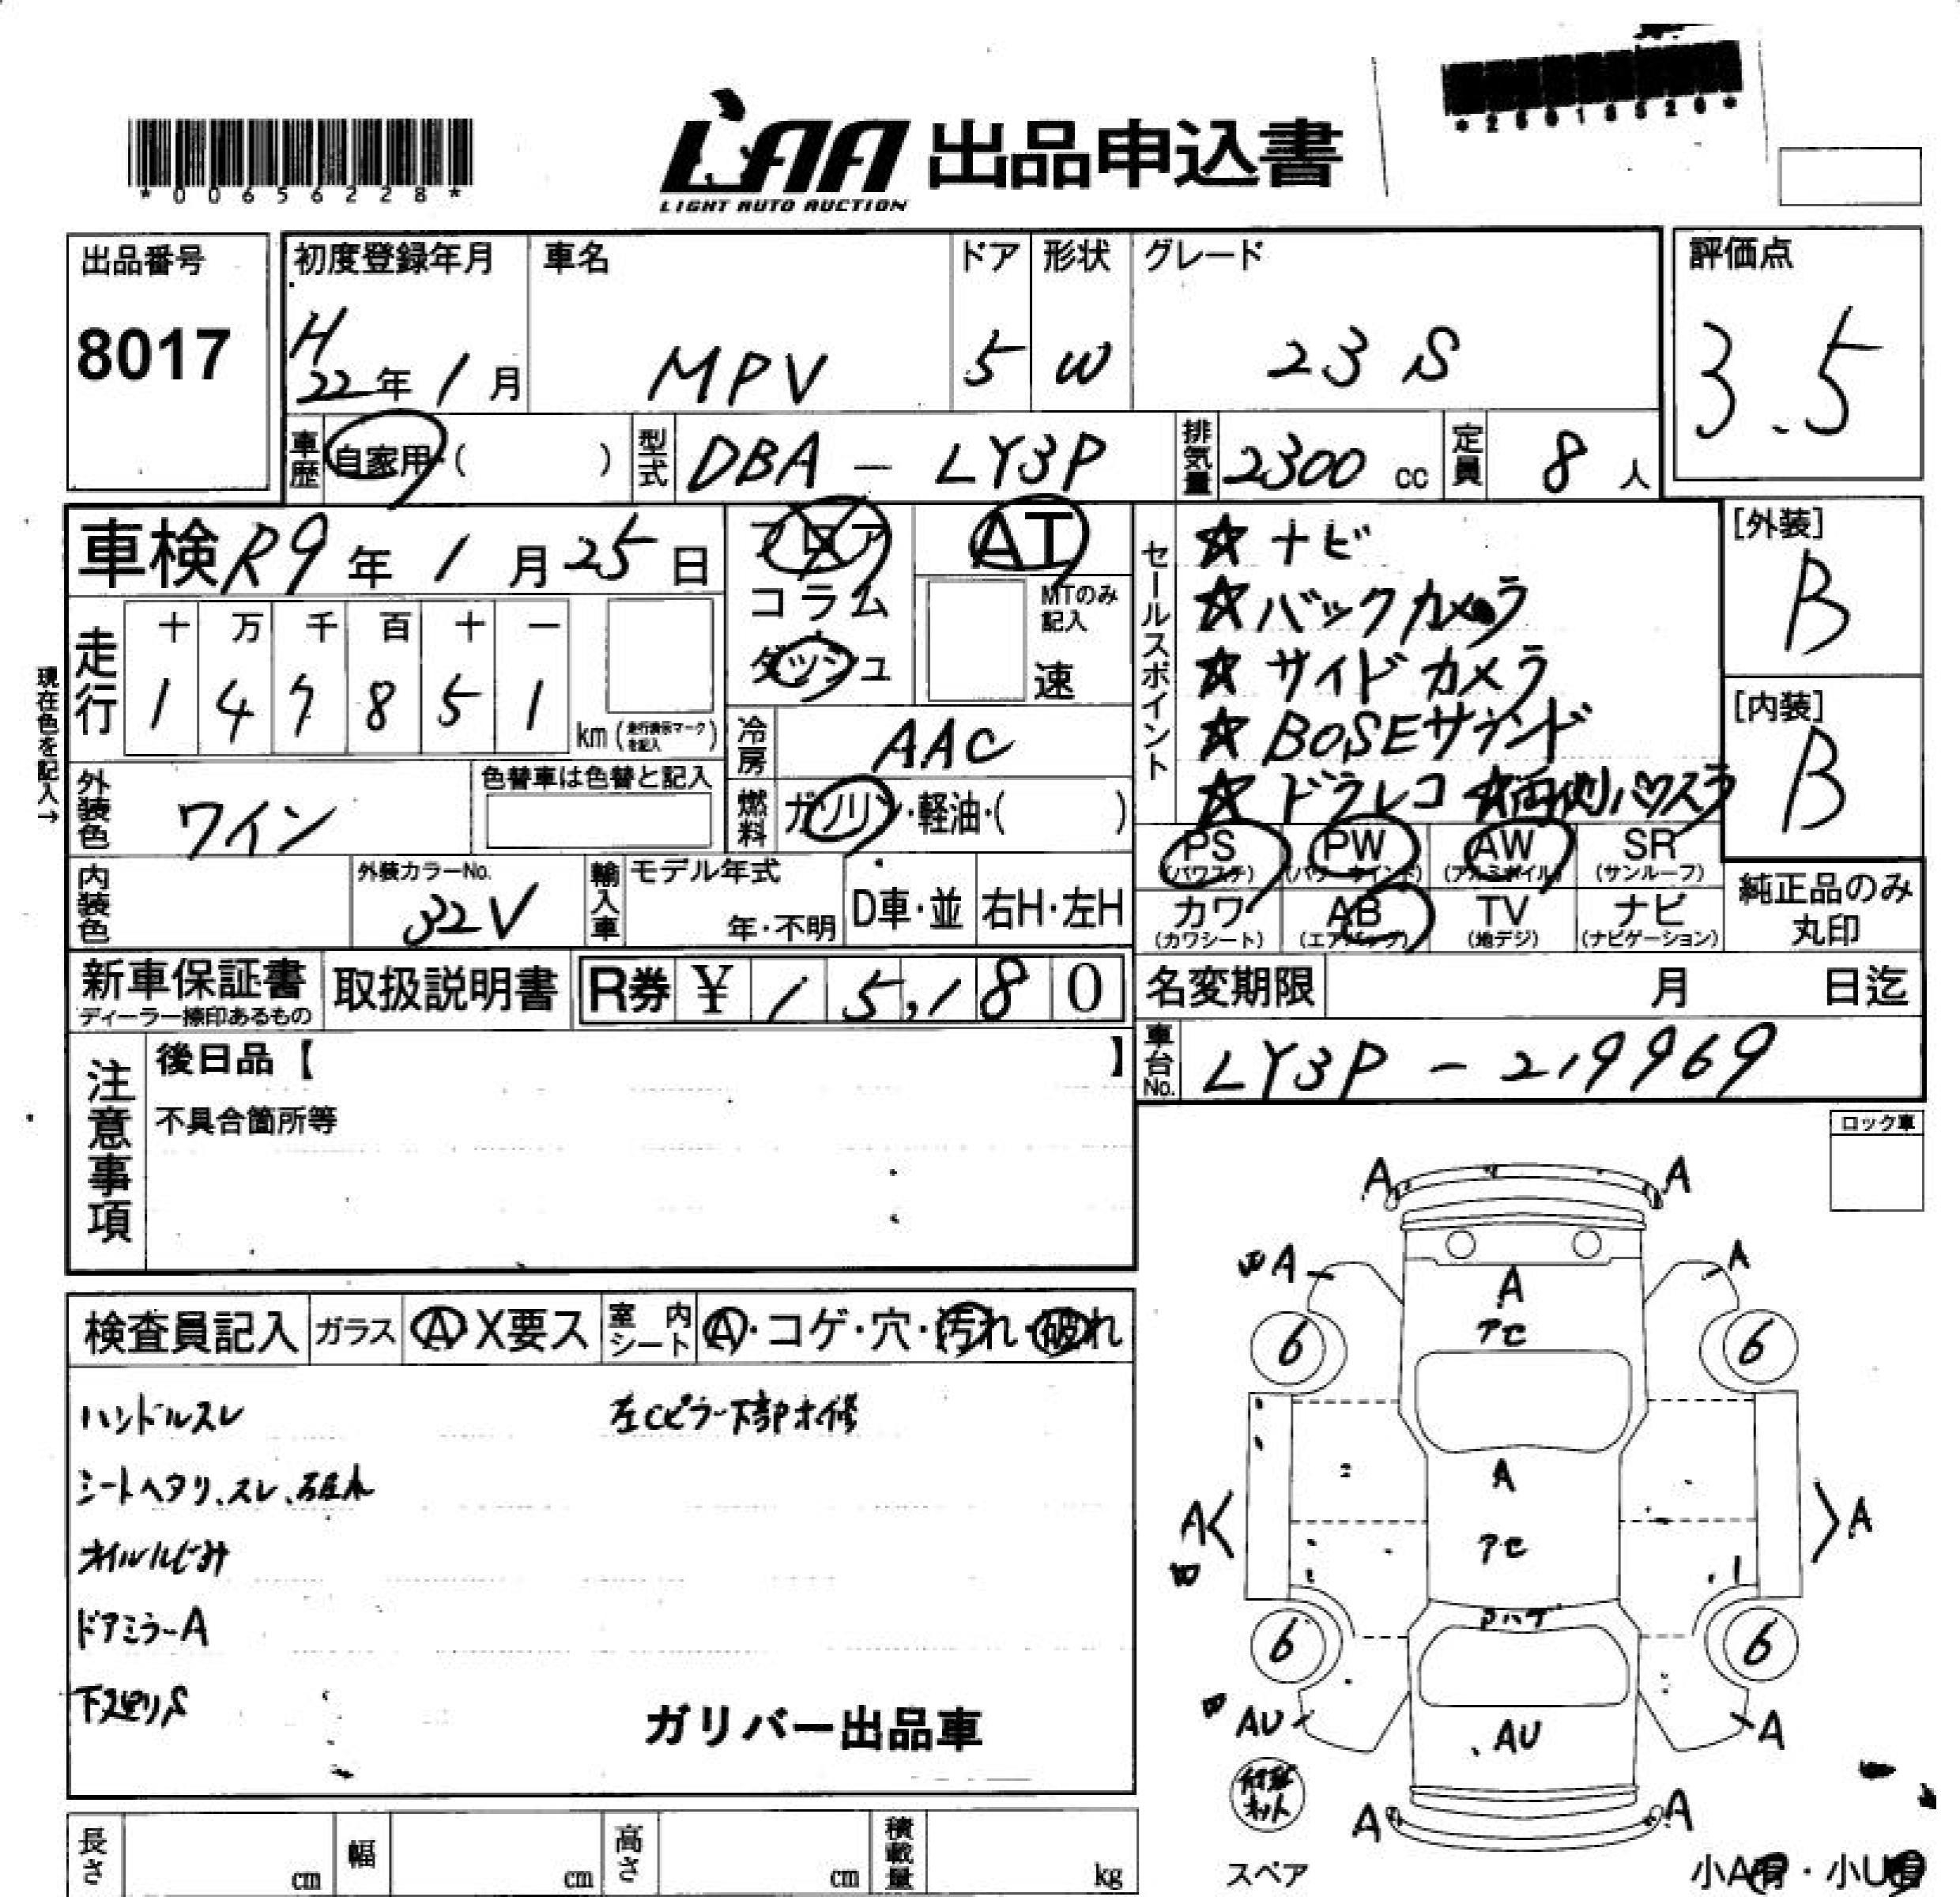 *00656228*
LAA 出品申込書
LIGHT AUTO AUCTION
出品番号
8017
初度登録年月 車名 ドア 形状 グレード
H22年1月 MPV 5 W 23S
評価点
3.5
車歴 自家用・( ) 型式 DBA - LY3P 排気量 2300 cc 定員 8 人
車検 R9年1月25日
フロア コラム ダッシュ
AT
MTのみ記入
速
セールスポイント
☆ナビ
☆バックカメラ
☆サイドカメラ
☆BOSEサウンド
☆ドラレコ ☆両側パワスラ
[外装]
B
[内装]
B
現在色を記入→
走行 十 万 千 百 十 一
1 4 7 8 5 1 km (走行表示マークを記入)
冷房 AAC
燃料 ガソリン・軽油・( )
外装色 ワイン 色替車は色替と記入
PS (パワステ) PW (パワーウインド) AW (アルミホイル) SR (サンルーフ)
カワ (カワシート) AB (エアバッグ) TV (地デジ) ナビ (ナビゲーション)
純正品のみ
丸印
内装色 外装カラーNo. 32V 輸入車 モデル年式 年・不明 D車・並 右H・左H
新車保証書 ディーラー捺印あるもの 取扱説明書 R券 ¥ 15,180
名変期限 月 日迄
車台No. LY3P - 219969
注意事項
後日品【 】
不具合箇所等
ロック車
検査員記入 ガラス A X要ス 室内シート A・コゲ・穴・汚れ・破れ
ハンドルスレ 左Cピラー下部ホ修
シートヘタリ、スレ、破れ
オイルにじみ
ドアミラーA
下スベリS
ガリバー出品車
A A
A A
A
アセ
6 6
A
A A
アセ
6 6
AU A
AU
A A
スペア
小A有・小U有
長さ cm 幅 cm 高さ cm 積載量 kg